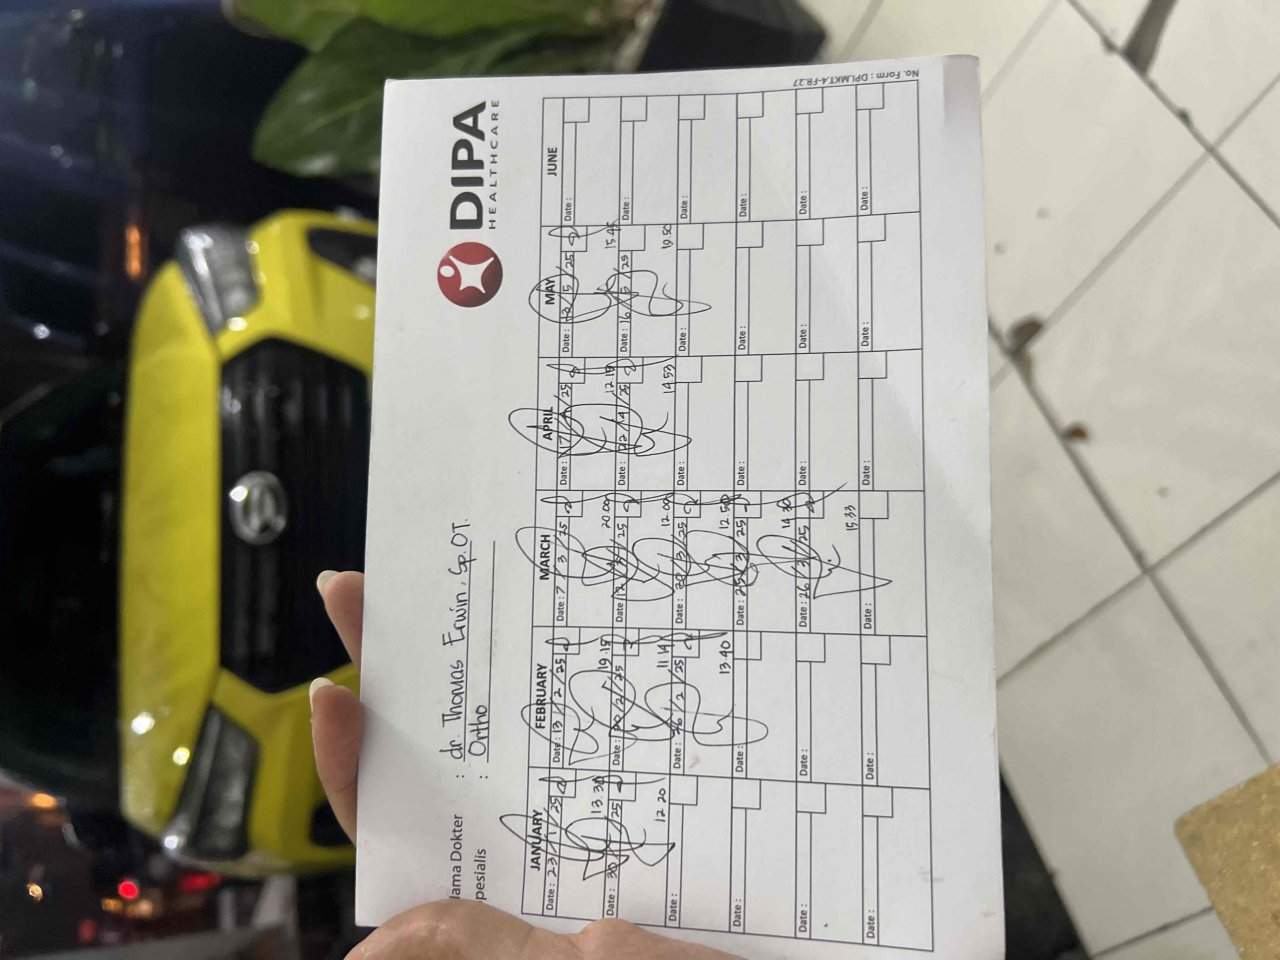 DIPA
HEALTHCARE
ama Dokter : dr. Thomas Erwin, Sp.OT.
pesialis : Ortho
JANUARY FEBRUARY MARCH APRIL MAY JUNE
Date : 23/1/25 Date : 13/2/25 Date : 7/3/25 Date : 17/4/25 Date : /5/25 Date :
13.30 19.15 20.00 12.15 15.45
Date : 30/ /25 Date : 20/2/25 Date : 12/3/25 Date : 22/4/25 Date : 16/5/25 Date :
12.20 11.14 12.00 14.53 19.50
Date : Date : 26/2/25 Date : 20/3/25 Date : Date : Date :
13.40 12.50
Date : Date : Date : 25/3/25 Date : Date : Date :
14.30
Date : Date : Date : 26/3/25 Date : Date : Date :
15.33
Date : Date : Date : Date : Date : Date :
No. Form : DPI.MKT.4-FR.27